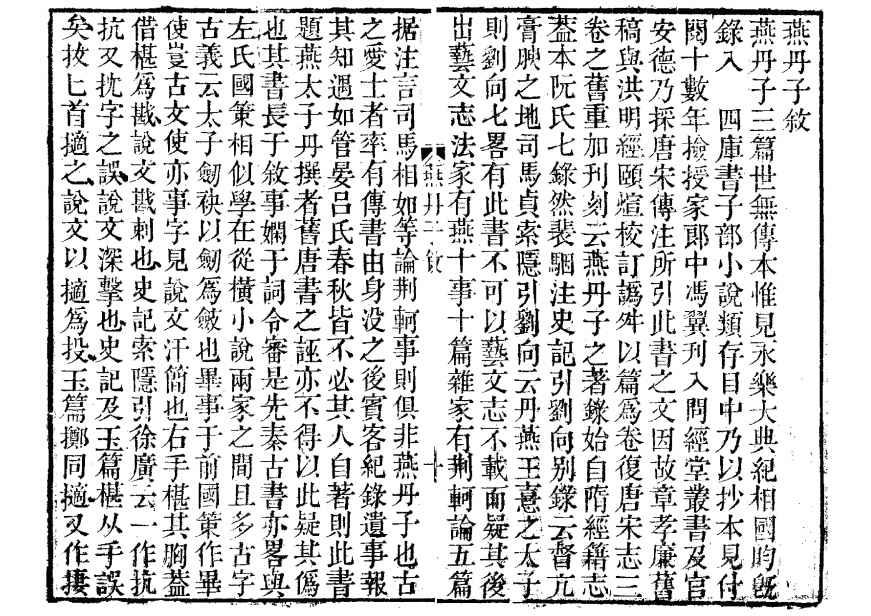 燕丹子敘
燕丹子三篇世無傳本惟見永樂大典紀相國昀旣
錄入　四庫書子部小說類存目中乃以抄本見付
閱十數年撿授家郎中馮翼刋入問經堂叢書及官
安德乃採唐宋傳注所引此書之文因故章孝廉舊
稿與洪明經頤煊校訂譌舛以篇爲卷復唐宋志三
卷之舊重加刋刻云燕丹子之著錄始自隋經籍志
葢本阮氏七錄然裴駰注史記引劉向别錄云督亢
膏腴之地司馬貞索隱引劉向云丹燕王喜之太子
則劉向七畧有此書不可以藝文志不載而疑其後
出藝文志法家有燕十事十篇雜家有荆軻論五篇
燕丹子敘
十
据注言司馬相如等論荆軻事則俱非燕丹子也古
之愛士者率有傳書由身没之後賓客紀錄遺事報
其知遇如管晏呂氏春秋皆不必其人自著則此書
題燕太子丹撰者舊唐書之誣亦不得以此疑其僞
也其書長于敘事嫻于詞令審是先秦古書亦畧與
左氏國策相似學在從橫小說兩家之間且多古字
古義云太子劒袂以劒爲斂也畢事于前國策作畢
使豈古文使亦事字見說文汗簡也右手椹其胸葢
借椹爲戡說文戡刺也史記索隱引徐廣云一作抗
抗又抌字之誤說文深擊也史記及玉篇椹从手誤
矣拔匕首擿之說文以擿爲投玉篇擲同擿又作捿